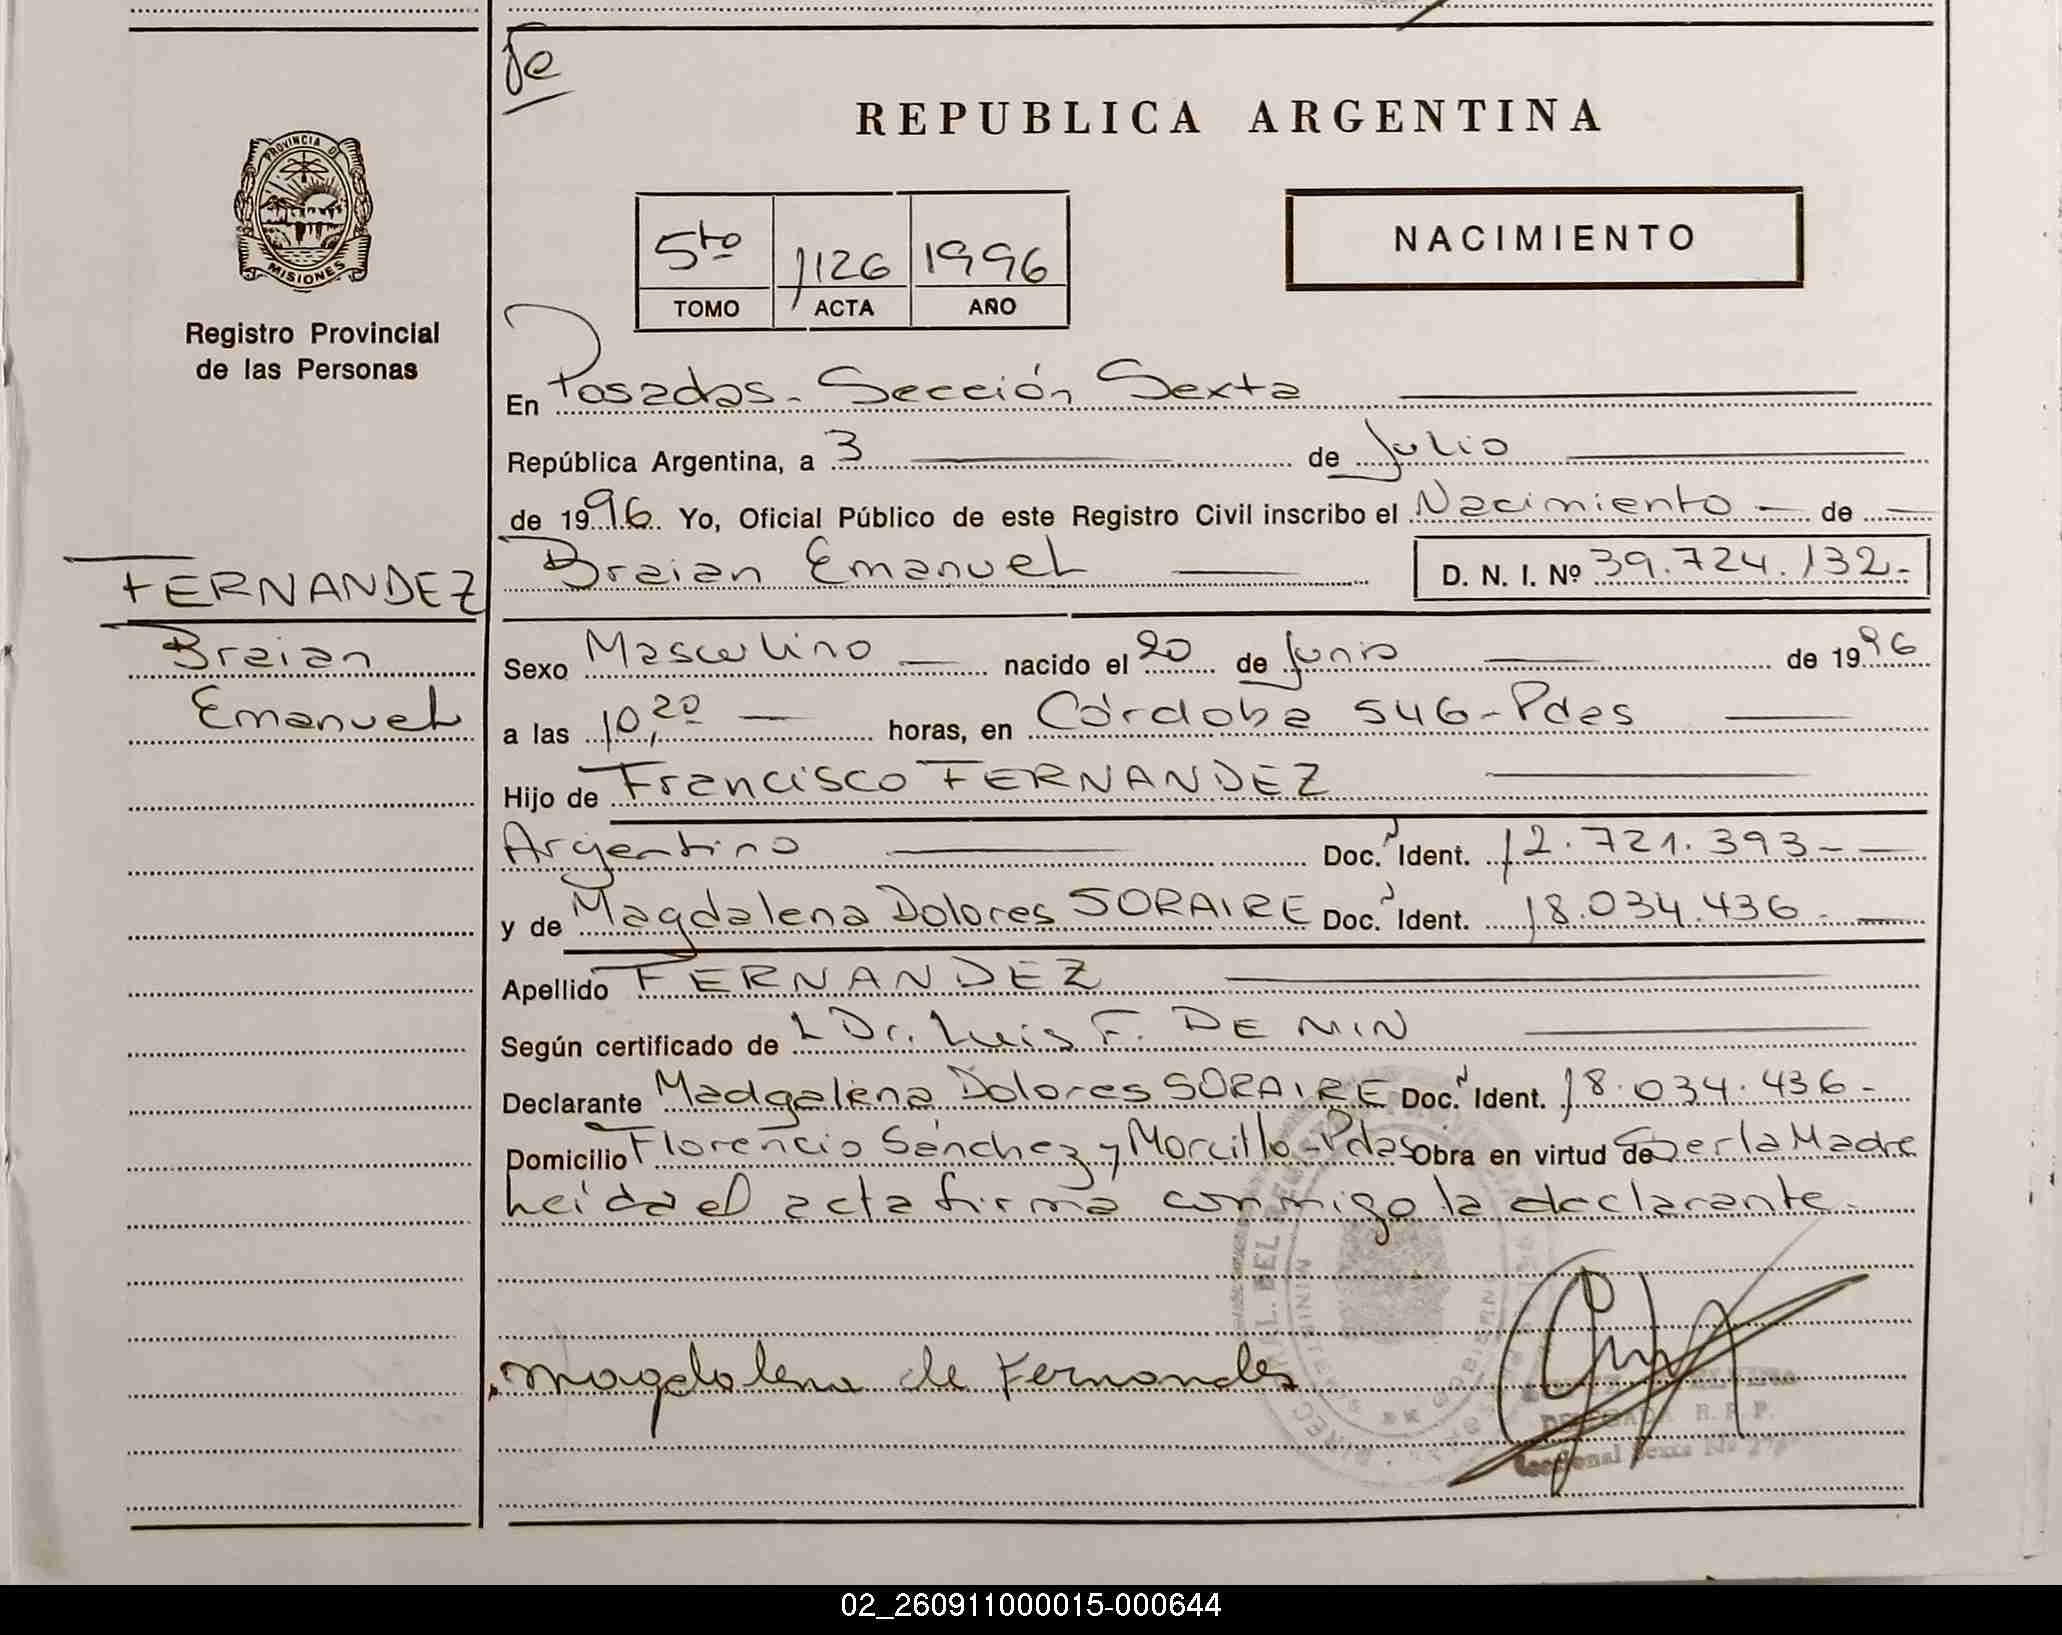 fe
PROVINCIA D
MISIONES
Registro Provincial
de las Personas
FERNANDEZ
Braian
Emanuel
REPUBLICA ARGENTINA
5to 1126 1996
TOMO ACTA AÑO
NACIMIENTO
En Posadas. Sección Sexta
República Argentina, a 3 de Julio
de 1996. Yo, Oficial Público de este Registro Civil inscribo el Nacimiento — de —
Braian Emanuel — D. N. I. Nº 39.724.132-
Sexo Masculino — nacido el 20 de Junio — de 1996
a las 10,20 — horas, en Córdoba 546-Pdas —
Hijo de Francisco FERNANDEZ —
Argentino — Doc. Ident. 12.721.393- —
y de Magdalena Dolores SORAIRE Doc. Ident. 18.034.436. —
Apellido FERNANDEZ —
Según certificado de L Dr. Luis F. DE MIN —
Declarante Madgalena Dolores SORAIRE Doc. Ident. 18.034.436-
Domicilio Florencio Sánchez y Morcillo-Pdas Obra en virtud de Ser la Madre
Leída el acta firma conmigo la declarante.
Magdalena de Fernandes
R. P. P.
02_260911000015-000644